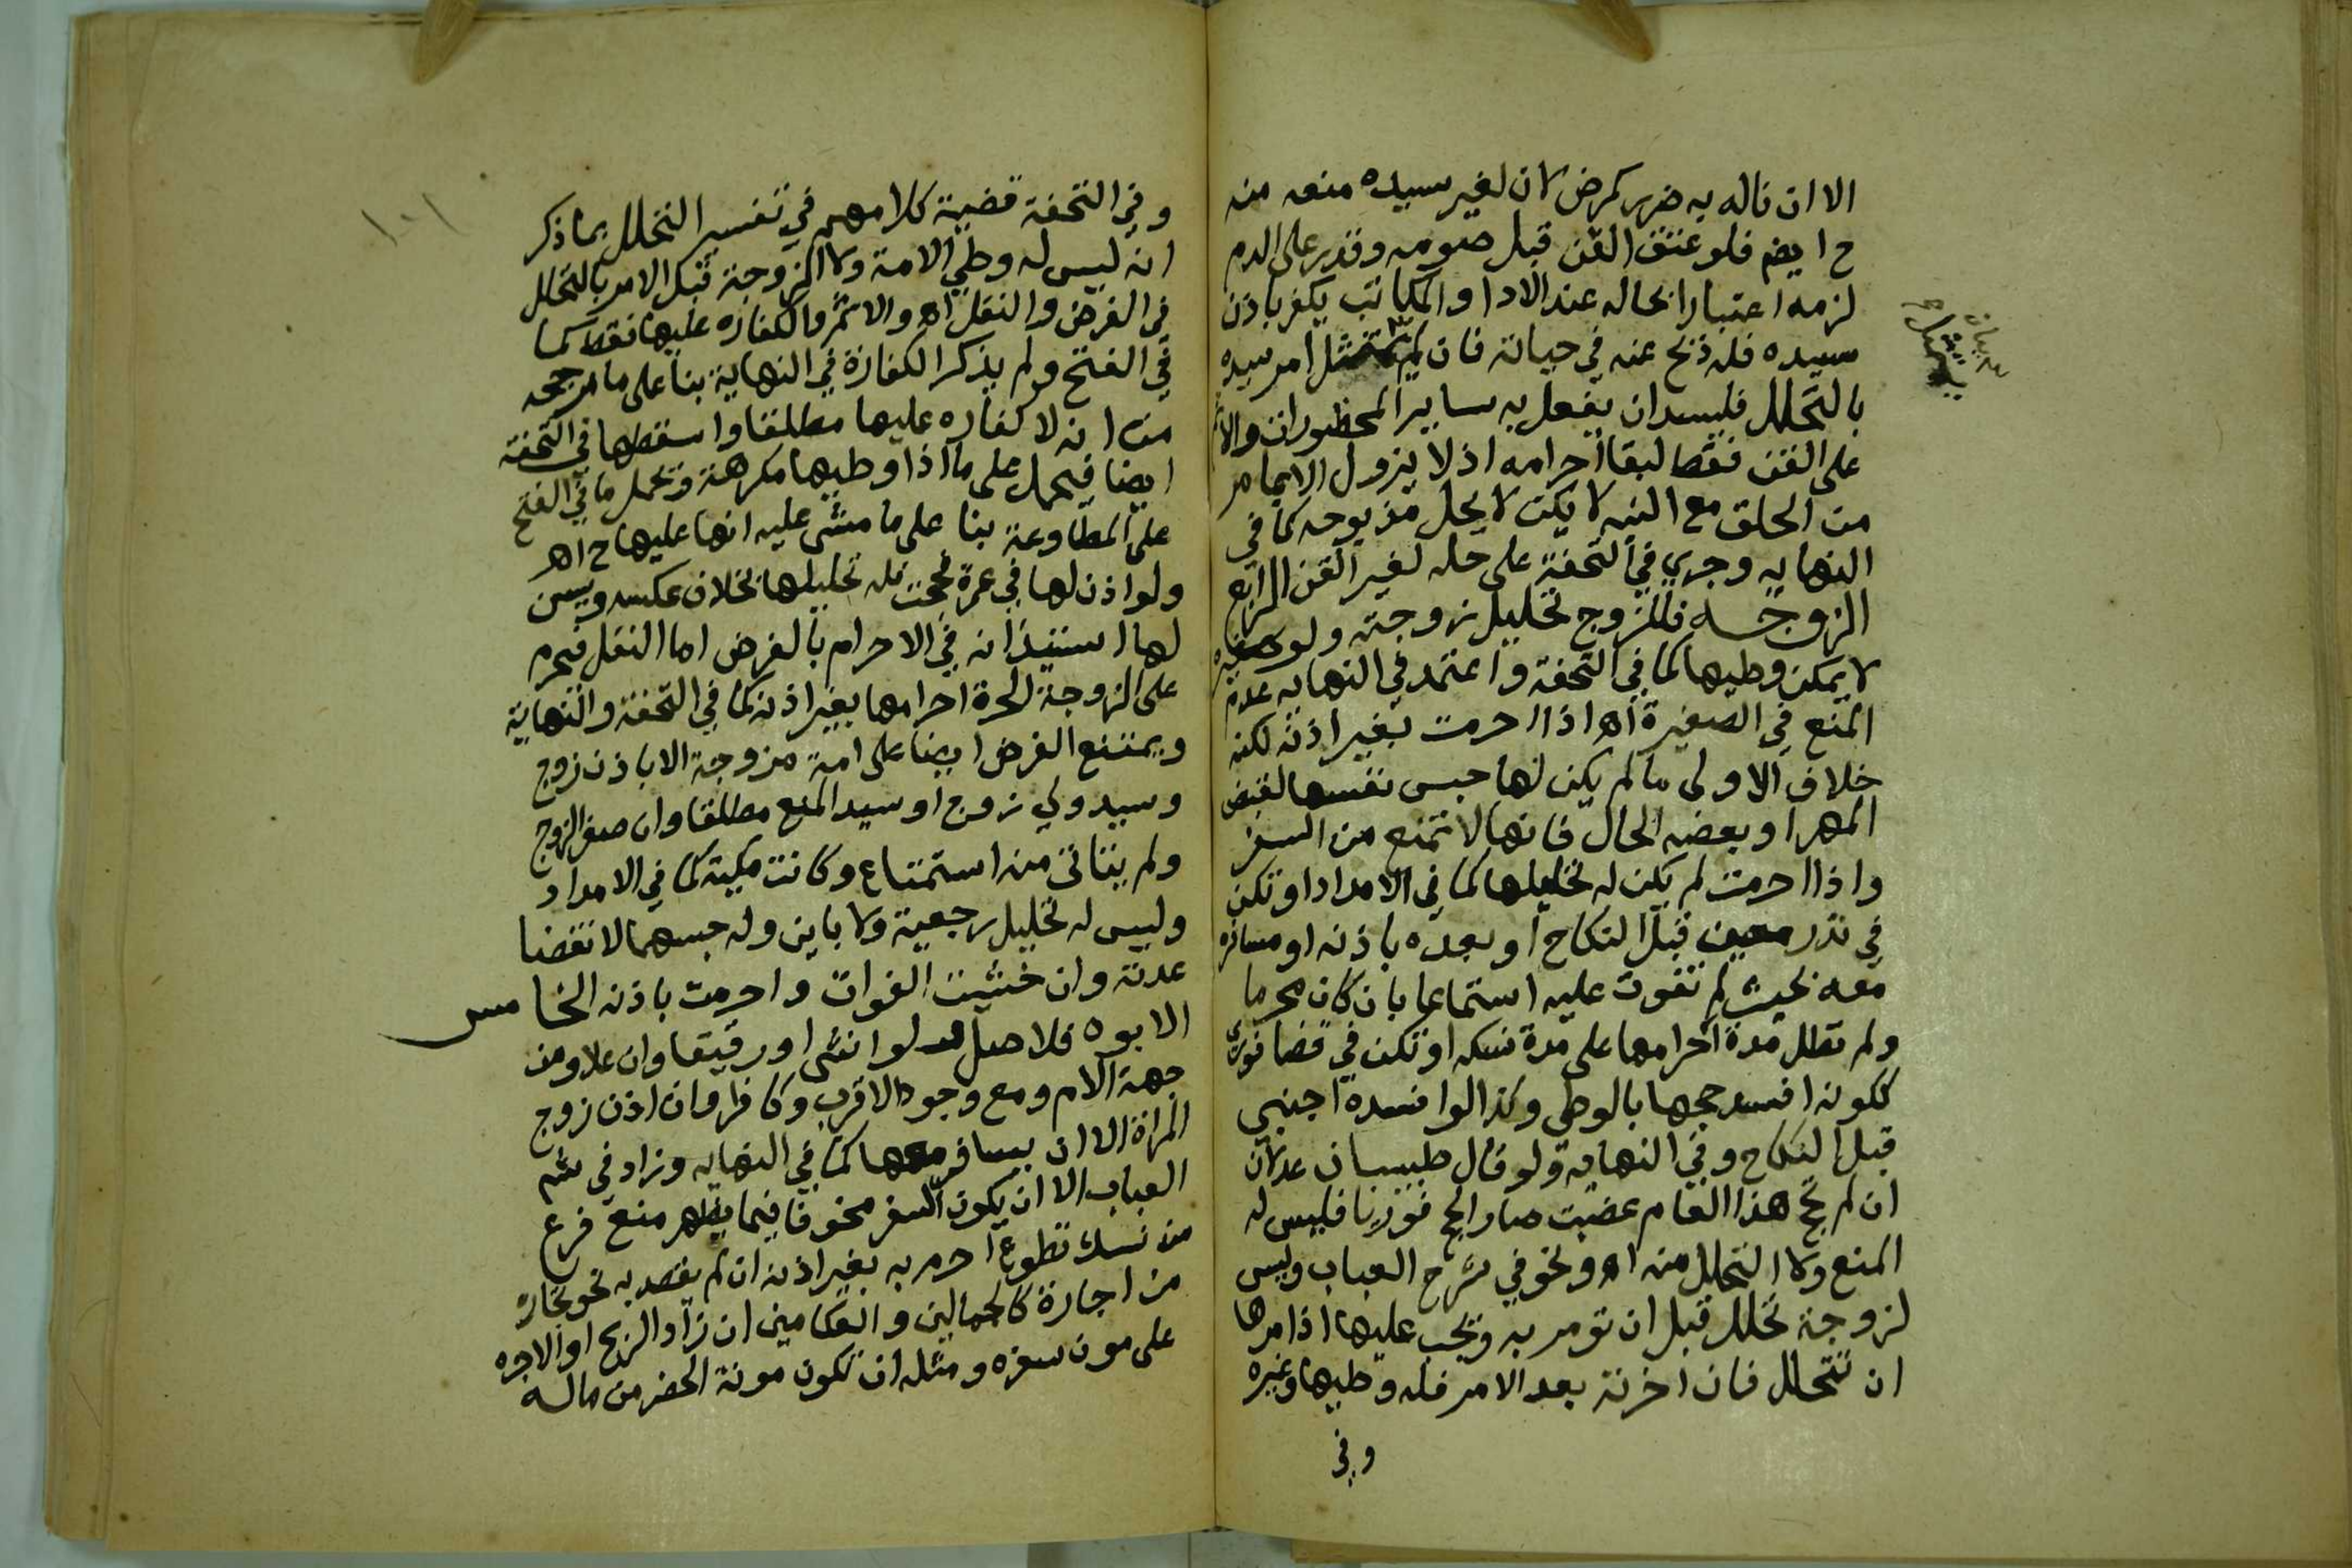 الا ان ناله به ضرر كمرض لان لغير سيده منعه منه
ح ايضم فلو عتق القن قبل صومه وقدر على الدم
لزمه اعتبارا بحاله عند الادا والمكاتب يكفر باذن
سيده فله ذبح عنه في حياته فان لم يمتثل امر سيده
بالتحلل فلسيده ان يفعل به ساير المحظورات والاثم
على القن فقط لبقا احرامه اذ لا يزول الا بما مر
من الحلق مع النيه لا يكن لا يحل مذبوحه كما في
النهايه وجري في التحفة على حله لغير القن الرابع
الزوجيه فللزوج تحليل زوجته ولو صغيره
لا يمكن وطيها كما في التحفة واعتمد في النهايه عدم
المنع في الصغيرة اه اذا احرمت بغير اذنه لكنه
خلاف الاولى ما لم يكن لها حبس نفسها لقبض
المهر او بعضه الحال فانها لا تمنع من السفر
واذا احرمت لم يكن له تحليلها كما في الامداد او تكن
في نذر معين قبل النكاح او بعده باذنه او مسافره
معه بحيث لم تفوت عليه استمتاعا بان كان محرما
ولم تطل مدة احرامها على مدة نسكه او تكن في قضا فوري
ككونه افسد حجها بالوطي وكذا لو افسده اجنبي
قبل النكاح وفي النهاية ولو قال طبيبان عدلان
ان لم تحج هذا العام عضبت صار الحج فوريا فليس له
المنع ولا التحلل منه اه ونحو في شرح العباب وليس
لزوجة تحلل قبل ان تومر به ويجب عليها اذا امرها
ان تتحلل فان اخرته بعد الامر فله وطيها وغيره
وفي
١٠١
وفي التحفة قضية كلامهم في تفسير التحلل بما ذكر
انه ليس له وطي الامة ولا الزوجة قبل الامر بالتحلل
في الفرض والنفل اه والاثم والكفاره عليها فقط كما
في الفتح ولم يذكر الكفارة في النهاية بنا على ما مر جحه
من انه لا كفاره عليها مطلقا واسقطها في التحفة
ايضا فيحمل على ما اذا وطيها مكرهة ويحمل ما في الفتح
على المطاوعة بنا على ما مشى عليه انها عليها ح اهر
ولو اذن لها في عمرة فحجت فله تحليلها بخلاف عكسه ويسن
لها استيذانه في الاحرام بالفرض اما النفل فيحرم
على الزوجة الحرة احرامها بغير اذنه كما في التحفة والنهاية
ويمتنع الفرض ايضا على امة مزوجة الا باذن زوج
وسيد ولي زوج او سيد المنع مطلقا وان صغر الزوج
ولم يتاتى منه استمتاع وكانت مكية كما في الامداد
وليس له تحليل رجعية ولا باين وله حبسهما لانقضا
عدته وان خشيت الفوات واحرمت باذنه الخامس
الابوه فلاصل ولو انثى او رقيقا وان علا ومن
جهة الام ومع وجود الاقرب وكافرا وان اذن زوج
المراة الا ان يسافر معها كما في النهايه وزاد في شم
العباب الا ان يكون السفر مخوفا فيما يظهر منع فرع
من نسك تطوع احرم به بغير اذنه ان لم يقصد به نحو تجارة
من اجارة كالجمالين والعكامين ان زاد الربح او الاجره
على مون سفره ومثله ان تكون مونة الحضر من ماله